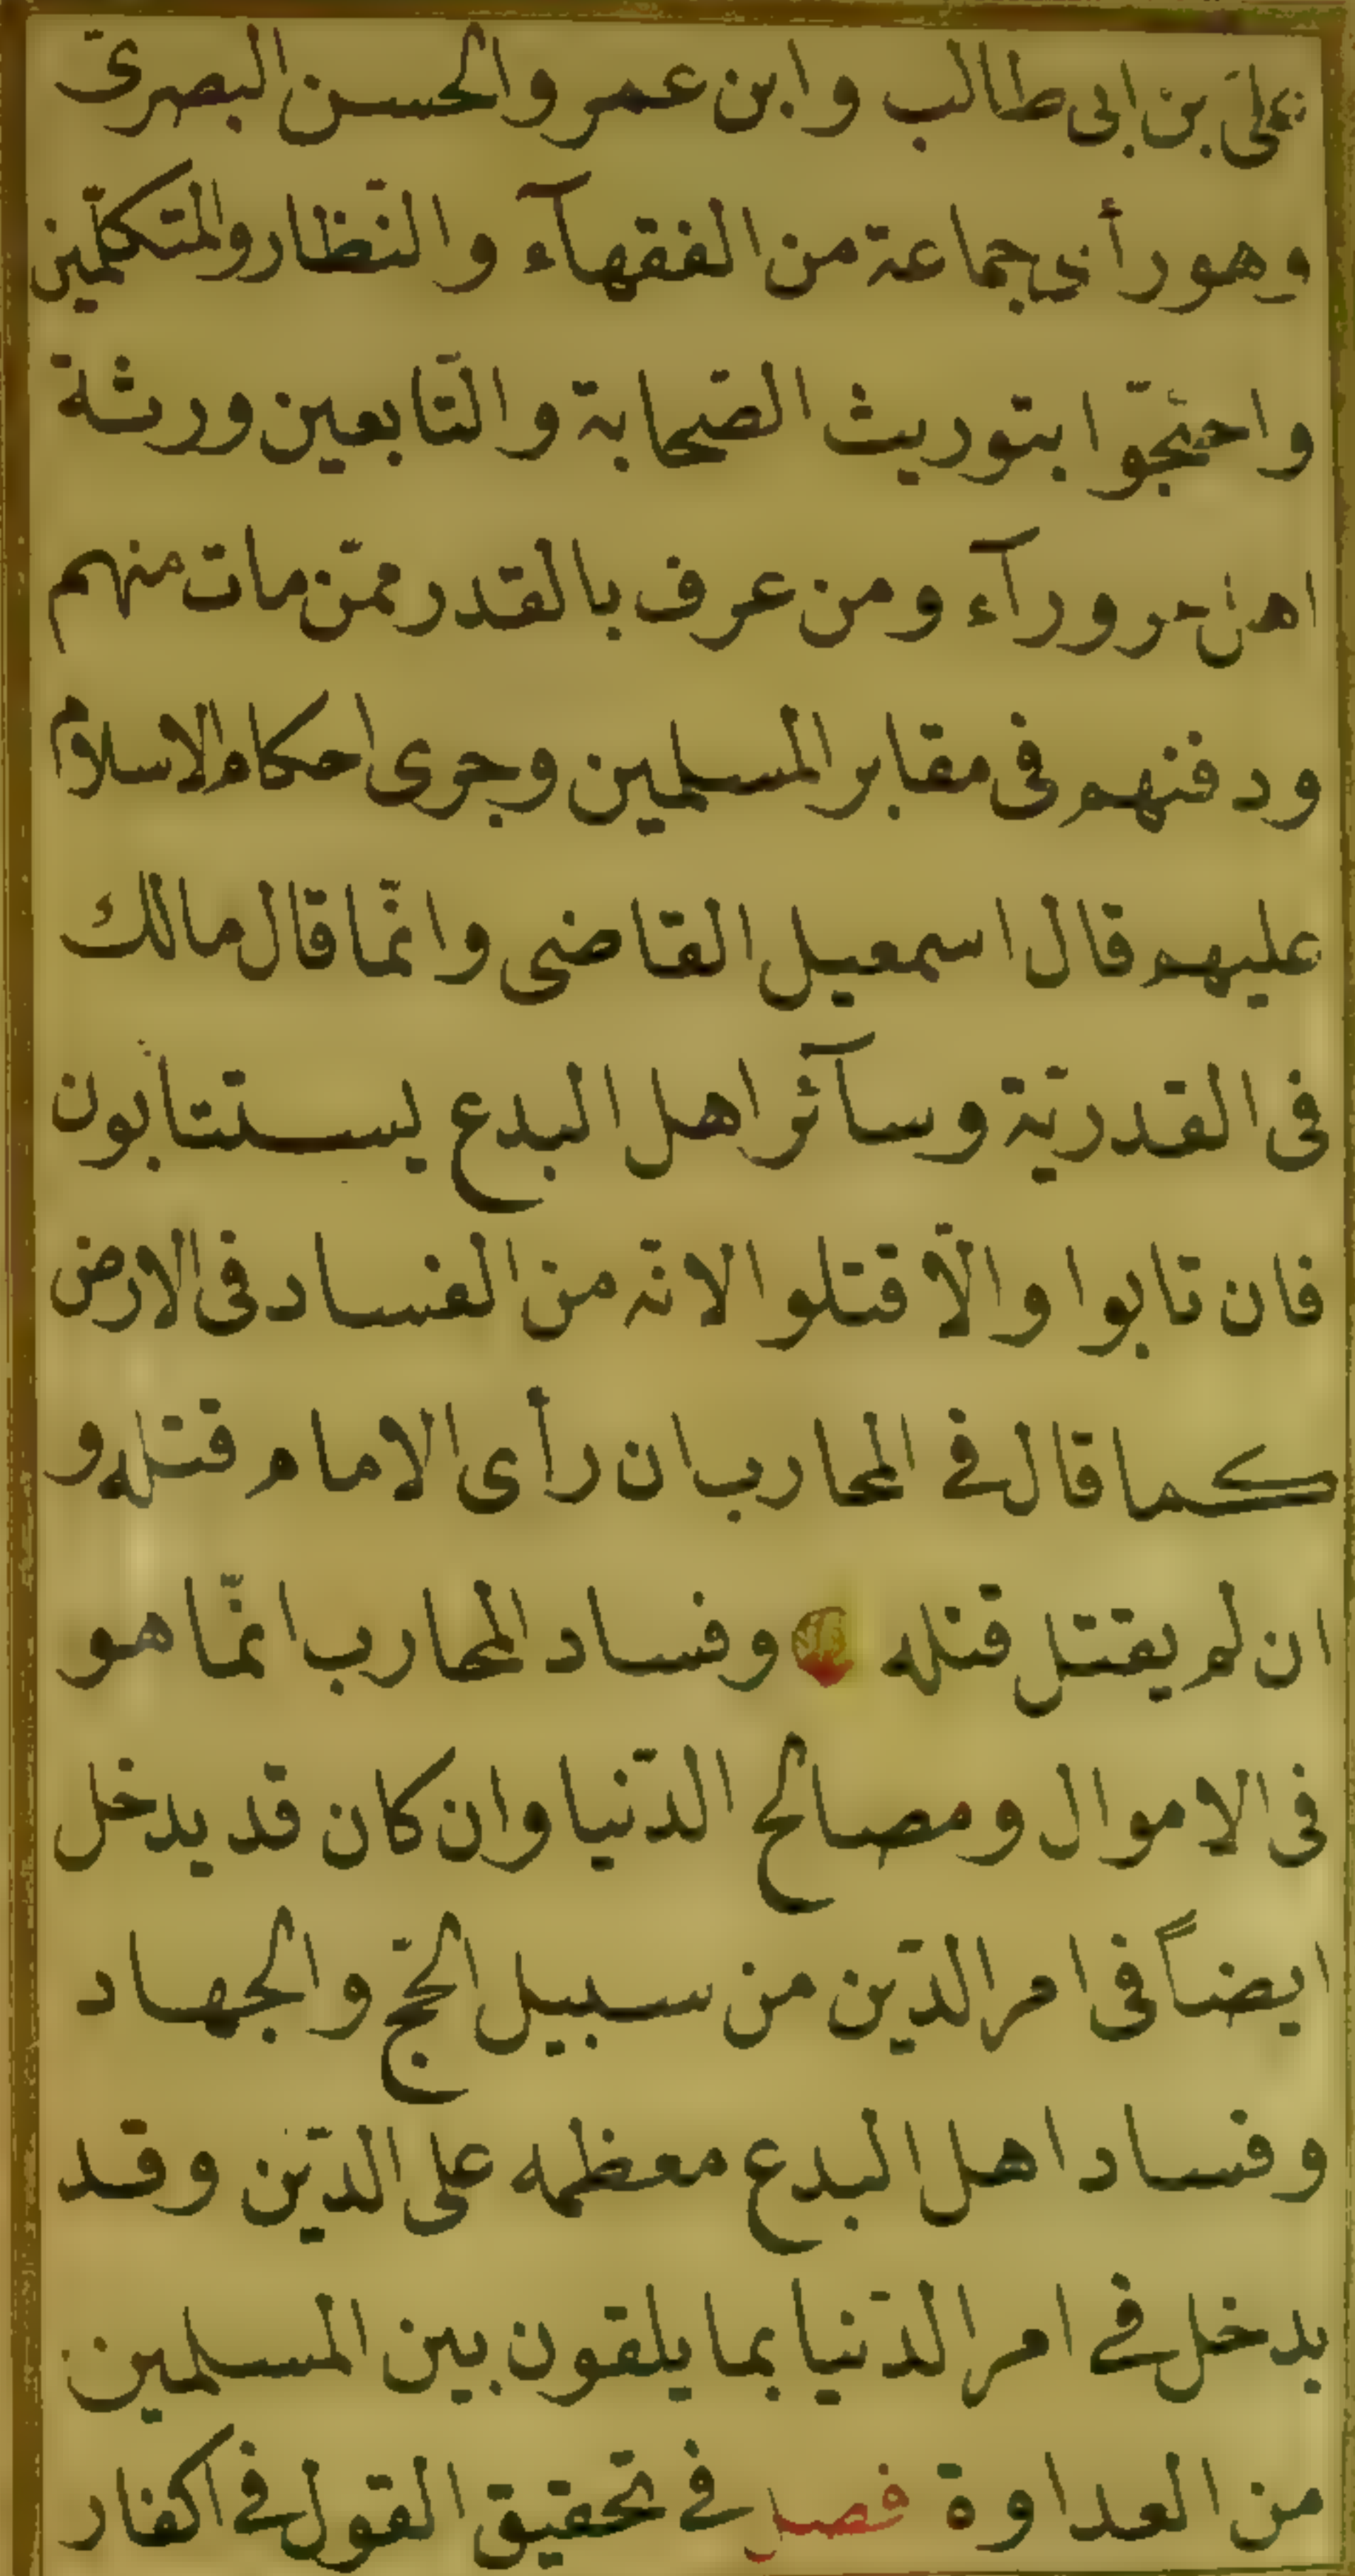 على بن ابى طالب وابن عمر والحسن البصرىّ
وهو رأى جماعة من الفقهآء والنّظار والمتكلّمين
واحتجّوا بتوريث الصّحابة والتّابعين ورثة
اهل حرورآء ومن عرف بالقدر ممّن مات منهم
ودفنهم فى مقابر المسلمين وجرى احكام الاسلام
عليهم قال اسمعيل القاضى وانّما قال مالك
فى القدريّة وسآئر اهل البدع يستتابون
فان تابوا والّا قتلوا لانّه من الفساد فى الارض
كما قال فى المحارب ان رأى الامام قتله و
ان لم يقتل قتله وفساد المحارب انّما هو
فى الاموال ومصالح الدّنيا وان كان قد يدخل
ايضاً فى امر الدّين من سبيل الحجّ والجهاد
وفساد اهل البدع معظمه على الدّين وقد
يدخل فى امر الدّنيا بما يلقون بين المسلمين
من العداوة فصل فى تحقيق القول فى اكفار